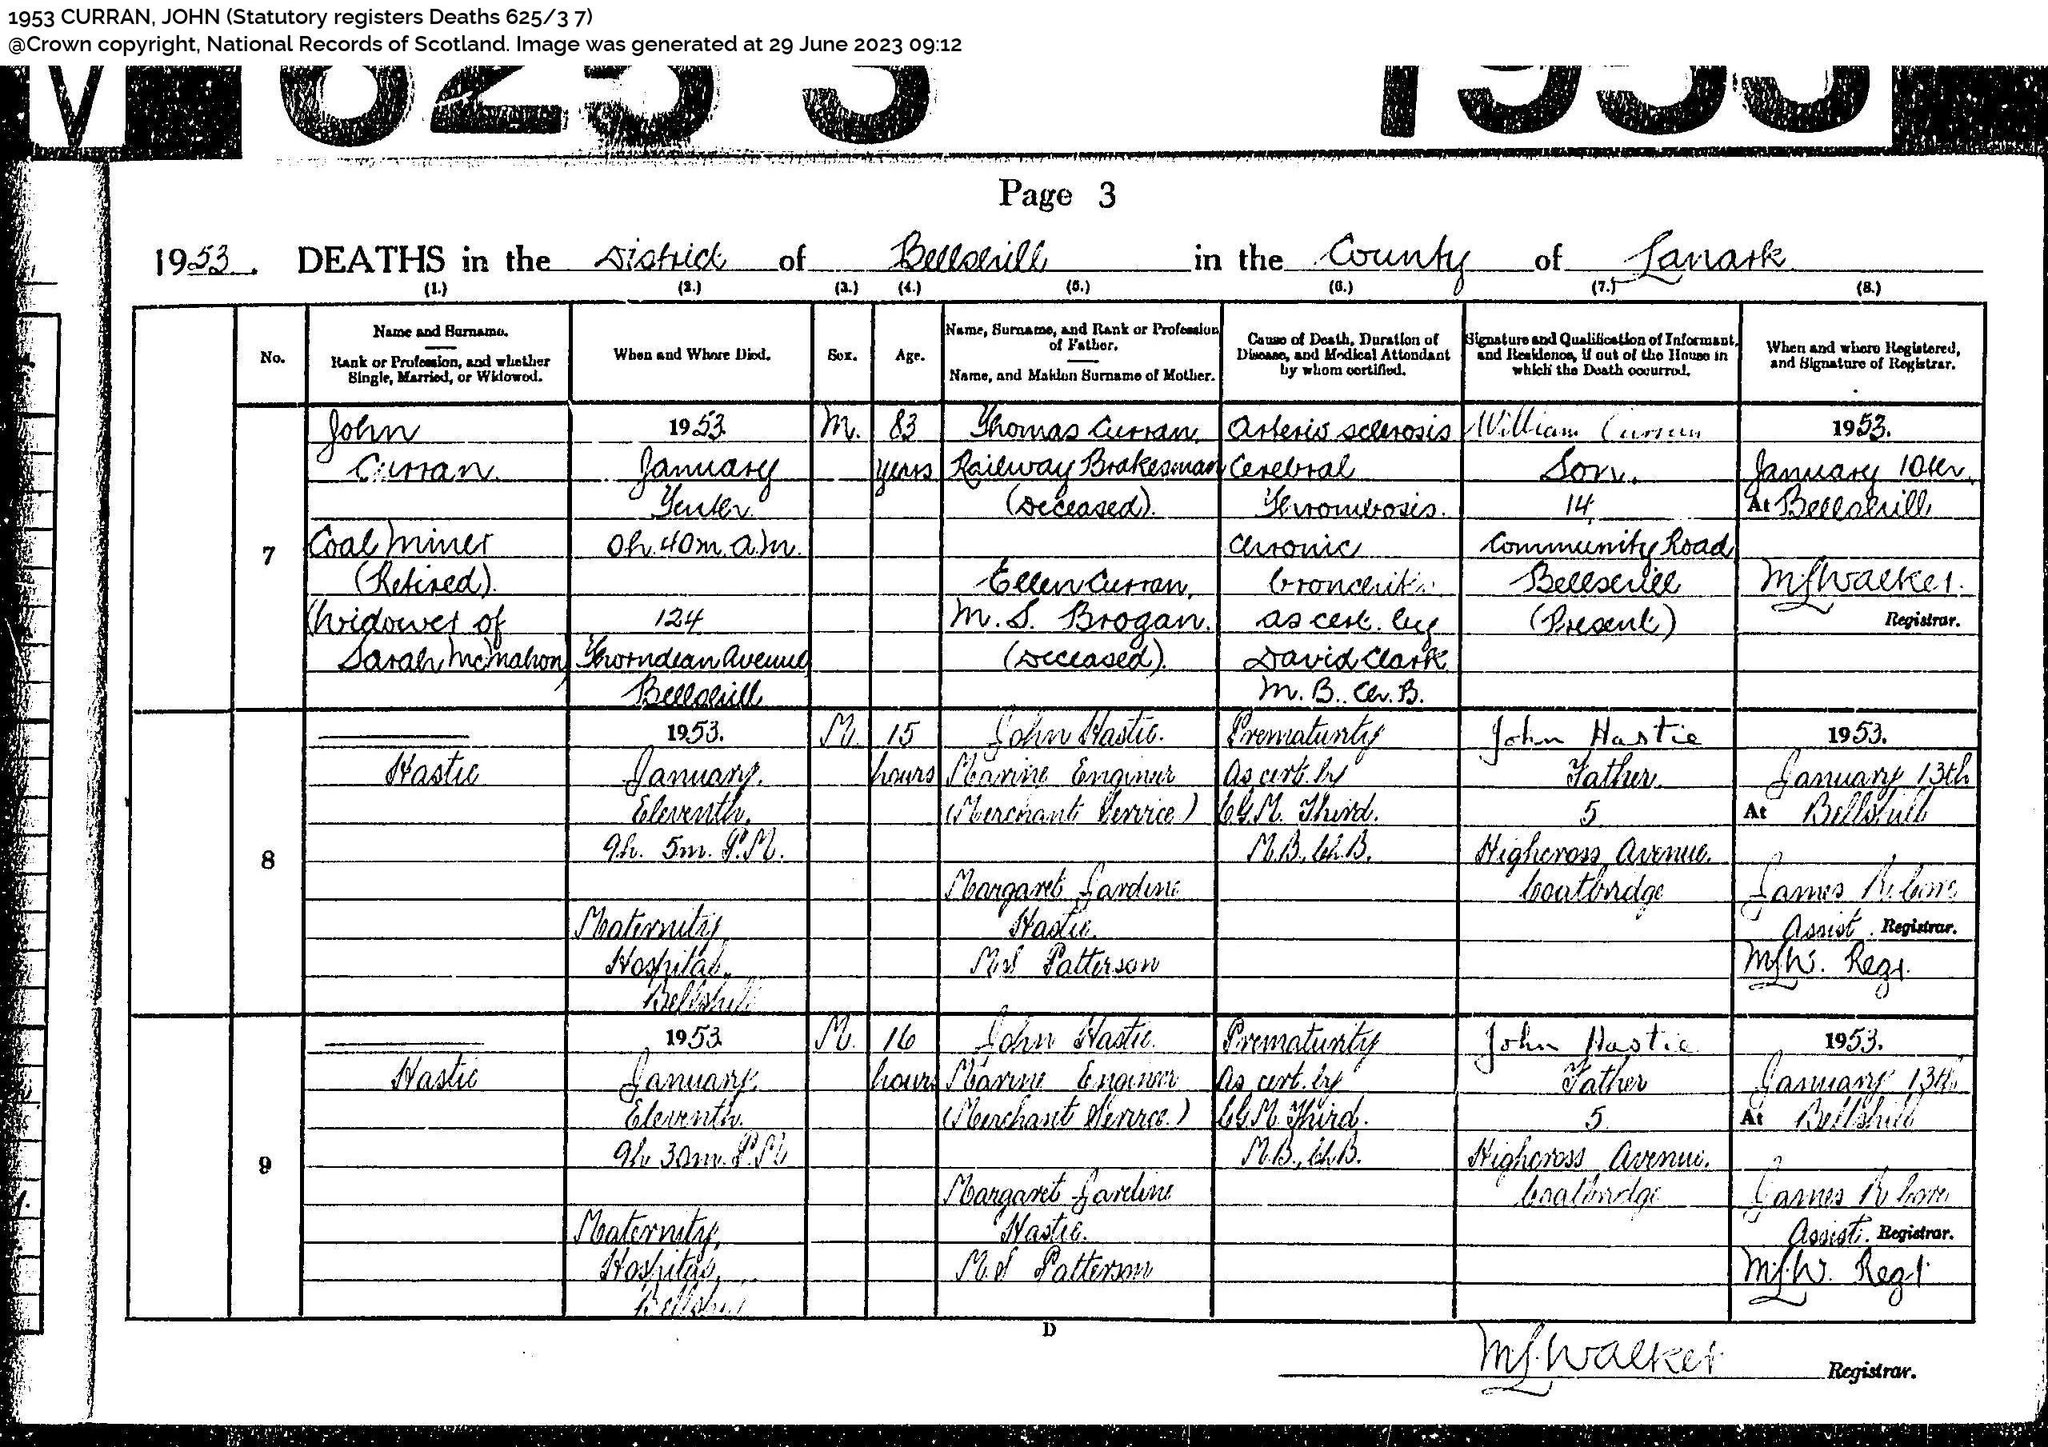 1953 CURRAN, JOHN (Statutory registers Deaths 625/3 7)
@Crown copyright, National Records of Scotland. Image was generated at 29 June 2023 09:12
625 3 1953
Page 3
1953. DEATHS in the District of Bellshill in the County of Lanark
(1.) (2.) (3.) (4.) (5.) (6.) (7.) (8.)
No.
Name and Surname.
Rank or Profession, and whether
Single, Married, or Widowed.
When and Where Died.
Sex.
Age.
Name, Surname, and Rank or Profession
of Father.
Name, and Maiden Surname of Mother.
Cause of Death, Duration of
Disease, and Medical Attendant
by whom certified.
Signature and Qualification of Informant,
and Residence, if out of the House in
which the Death occurred.
When and where Registered,
and Signature of Registrar.
7
John
Curran.
Coal Miner
(Retired).
(Widower of
Sarah McMahon)
1953.
January
Tenth.
0h. 40m. a.m.
124
Thorndean Avenue
Bellshill
M.
83
years
Thomas Curran,
Railway Brakesman
(Deceased).
Ellen Curran,
M. S. Brogan.
(Deceased).
Arterio sclerosis
Cerebral
Thrombosis.
Chronic
bronchitis
as cert. by
David Clark
M. B. Ch. B.
William Curran
Son.
14
Community Road
Bellshill
(Present)
1953.
January 10th.
At Bellshill
M L Walker.
Registrar.
8
Hastie
1953.
January.
Eleventh.
9h. 5m. P.M.
Maternity
Hospital,
Bellshill
M.
15
hours
John Hastie.
Marine Engineer
(Merchant Service)
Margaret Jardine
Hastie.
M.S Patterson
Prematurity
As cert. by
M. Third.
M.B., Ch.B.
John Hastie
Father.
5
Highcross Avenue.
Coatbridge
1953.
January 13th
At Bellshill
James
Assist. Registrar.
M.L.W. Regr.
9
Hastie
1953
January.
Eleventh.
9h 30m. P.M
Maternity,
Hospital,
Bellshill
M.
16
hours
John Hastie.
Marine Engineer
(Merchant Service.)
Margaret Jardine
Hastie.
M.S Patterson
Prematurity
As cert. by
M. Third.
M.B., Ch.B.
John Hastie
Father
5
Highcross Avenue.
Coatbridge
1953.
January 13th
At Bellshill
James
Assist. Registrar.
M.L.W. Regr
D
M L Walker
Registrar.